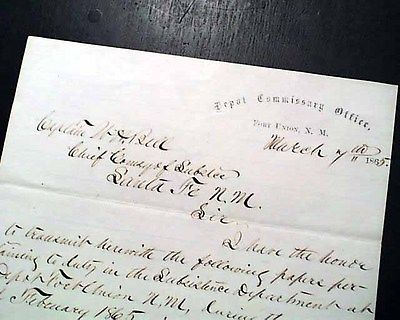 Depot Commissary Office,
Fort Union, N. M.
March 7th 1865.
Captn W. H. Bell
Chief Comsy of Subsitce
Santa Fe N.M.
Sir
I have the honor
to transmit herewith the following papers per-
taining to duty in the Subsistence Department at
Depot Fort Union N.M. during the
February 1865